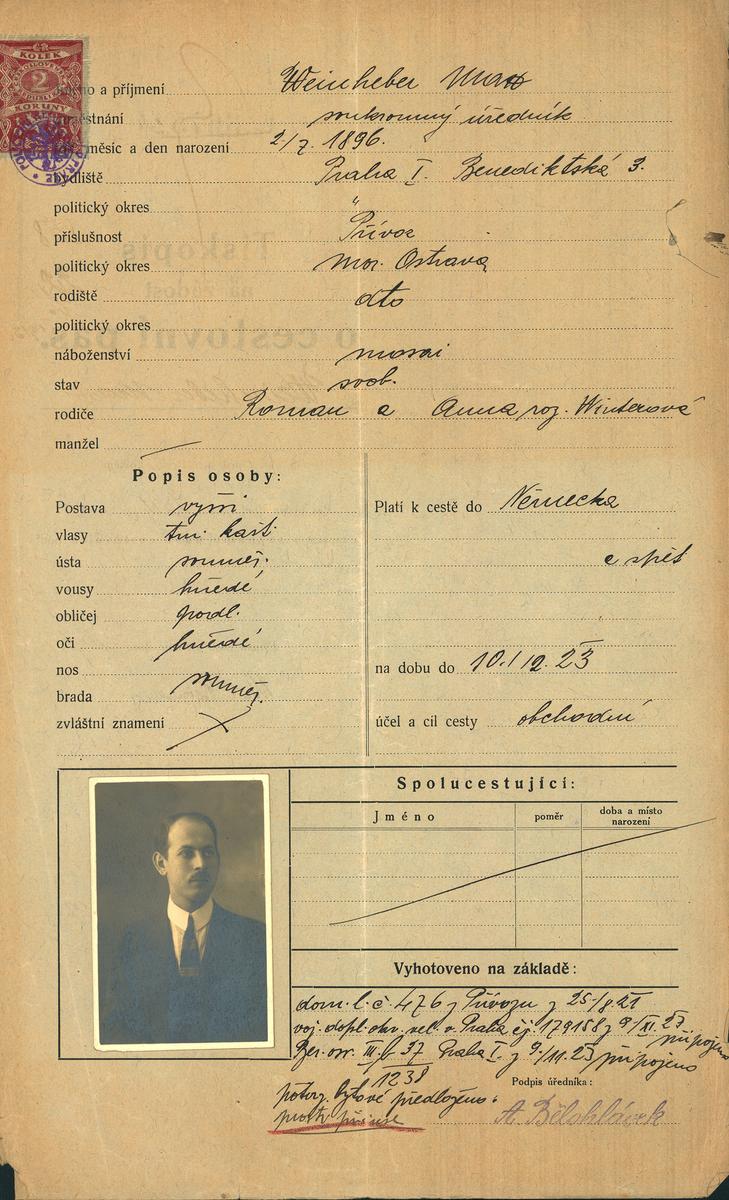 KOLEK
2
KORUNY
jméno a příjmení Weinheber Max
zaměstnání soukromný úředník
rok, měsíc a den narození 2/7. 1896.
bydliště Praha I. Benediktská 3.
politický okres "
příslušnost Přívoz
politický okres Mor. Ostrava
rodiště dto
politický okres
náboženství mosai
stav svob.
rodiče Roman a Anna roz. Winterová
manžel
Popis osoby:
Postava vyšší
vlasy tm. kašt.
ústa souměr.
vousy hnědé
obličej podl.
oči hnědé
nos souměr.
brada
zvláštní znamení
Platí k cestě do Německa
a zpět
na dobu do 10./12. 23
účel a cíl cesty obchodní
Spolucestující:
Jméno poměr doba a místo narození
Vyhotoveno na základě:
dom. l. č. 476 z Přívozu z 25/8. 21
voj. dopl. okr. vel. v. Praha čj. 179158 z 9/XI. 23. připojeno
Ber. osv. III. b 37 Praha I. z 9./11. 23 připojeno
1238
potvrz. bytové předloženo.
Podpis úředníka:
A. Bělohlávek